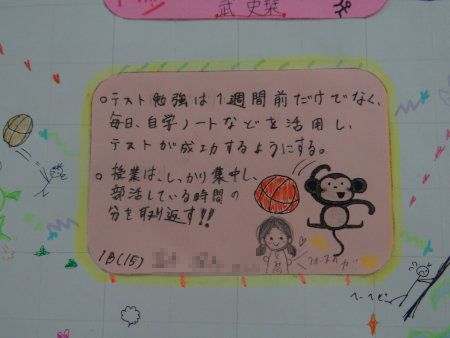 武 史栞
○テスト勉強は1週間前だけでなく、
毎日、自学ノートなどを活用し、
テストが成功するようにする。
○授業は、しっかり集中し、
部活している時間の
分を取り返す!!
1B(15)
へーへと